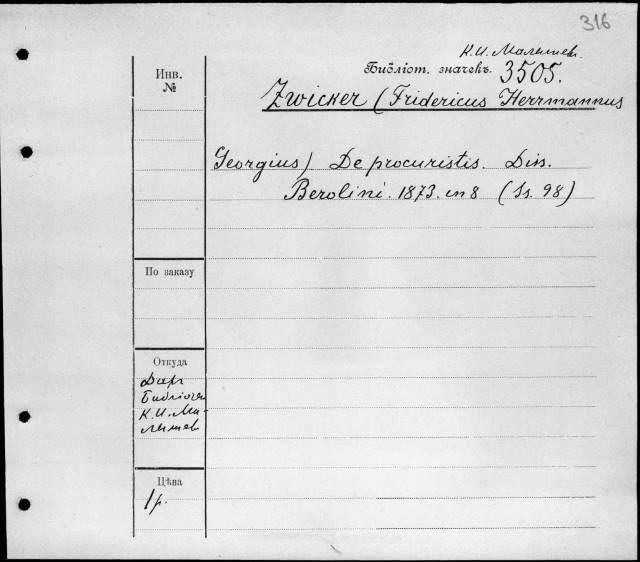 316
К. И. Малышев.
Инв. №
Библіот. значекъ 3505.
Zwicker (Fridericus Herrmannus
Georgius) De procuristis. Diss.
Berolini. 1873. in 8 (Ss. 98)
По заказу
Откуда
Дар
Библіотеки
К. И. Ма-
лышев
Цѣна
1 р.